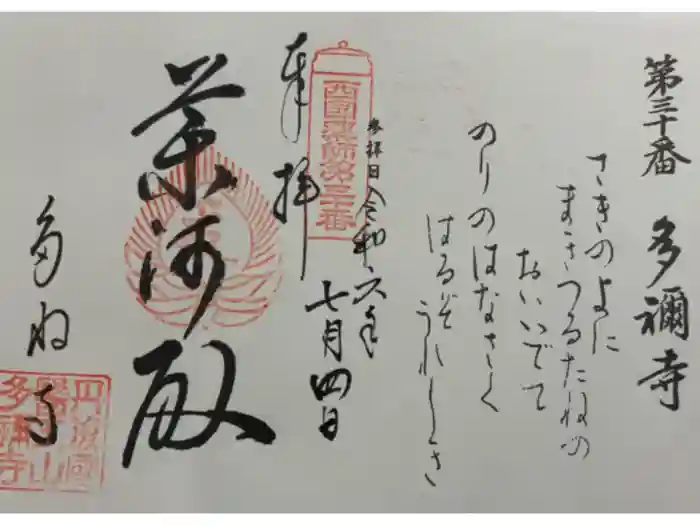 第三十番 多禰寺
さきのよに
まきつるたねの
おいいでて
のりのはなさく
はるぞうれしき
参拝日 令和六年
七月四日
西国薬師第三十番
奉拝
薬師殿
多祢寺
丹波國
醫王山
多禰寺